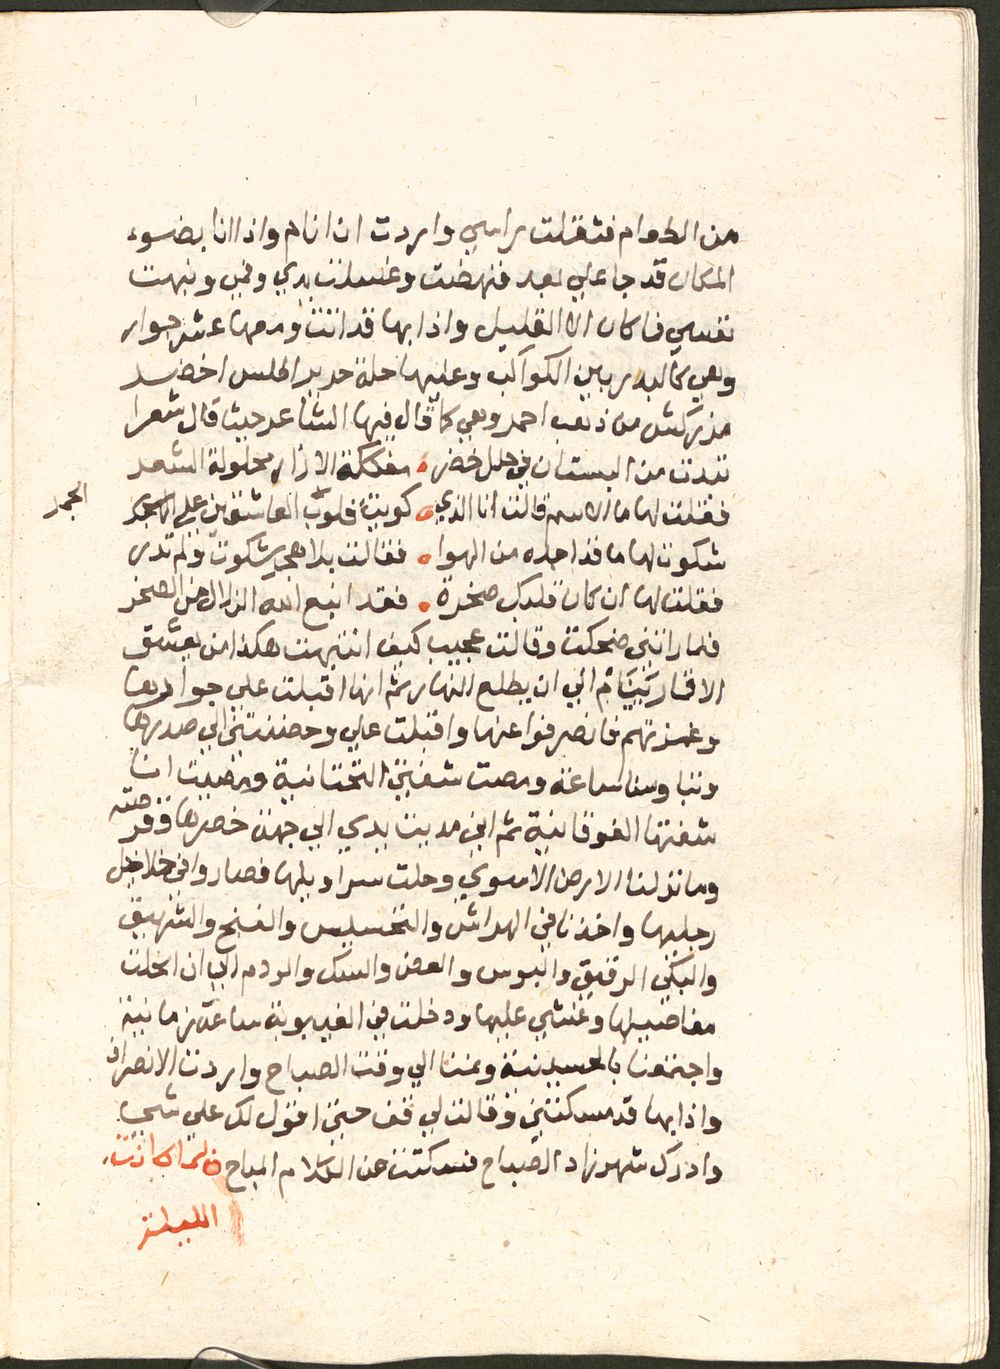 من الطعام فثقلت براسي واردت ان انام واذا انا بضوء
المكان قد جا علي بعد فنهضت وغسلت يدي وفمي ونبهت
نفسي فما كان الا القليل واذا بها قد اتت ومعها عشر جوار
وهي كالبدر بين الكواكب وعليها حلة حرير اطلس اخضر
مزركش من ذهب احمر وهي كما قال فيها الشاعر حيث قال شعرا
تبدت من البستان في حلل خضر مفككة الازار محلولة الشعر
فقلت لها ما الاسم قالت انا الذي كويت قلوب العاشقين علي
الجمر
شكوت لها ما قد اجده من الهوا فقالت بلا هجر شكوت ولم تدر
فقلت لها ان كان قلبك صخرة فقد انبع الله الزلال من الصخر
فلما راتني ضحكت وقالت عجيب كيف انتبهت هكذا من يعشق
الاقمار ينام الي ان يطلع النهار ثم انها اقبلت علي جوارها
وغمزتهم فانصرفوا عنها واقبلت علي وحضنتني الي صدرها
وتباوسنا ساعة ومصت شفتي التحتانية ومصيت انا
شفتها الفوقانية ثم اني مديت يدي الي جهة خصرها وقرصته
وما نزلنا الارض الا سوي وحلت سراويلها فصاروا في خلاخل
رجليها واخذنا في الهراش والتخسيس والغنج والشهيق
والبكي الرقيق والبوس والعض الي ان انحلت
مفاصيلها وغشي عليها ودخلت في الغيبوبة ساعة زمانية
ونمنا الي وقت الصباح واردت الانصراف
واذا بها قد مسكتني وقالت لي قف حتي اقول لك علي شي
وادرك شهرزاد الصباح فسكتت عن الكلام المباح فلما كانت
الليلة